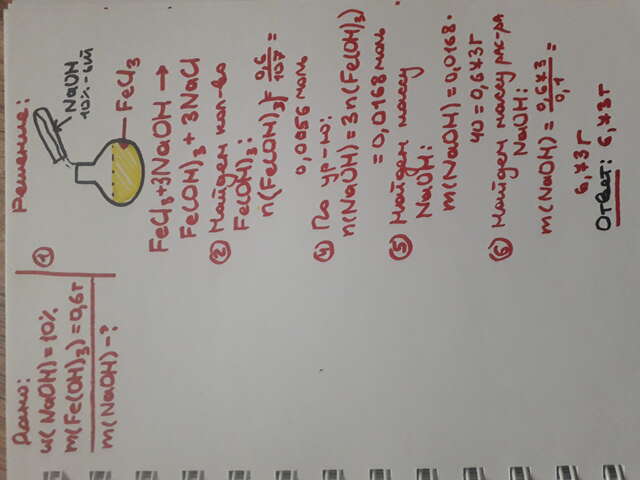 Дано:
ω(NaOH) = 10%
m(Fe(OH)₃) = 0,6 г
m(NaOH) - ?
Решение:
①
NaOH
10%-ый
FeCl₃
FeCl₃ + 3NaOH →
Fe(OH)₃ + 3NaCl
② Найдем кол-во
Fe(OH)₃:
n(Fe(OH)₃) = 0,6/107 =
0,0056 моль
④ По ур-ю:
n(NaOH) = 3n(Fe(OH)₃)
= 0,0168 моль
⑤ Найдем массу
NaOH:
m(NaOH) = 0,0168 ·
40 = 0,673 г
⑥ Найдем массу рас-ра
NaOH:
m(NaOH) = 0,673/0,1 =
6,73 г
Ответ: 6,73 г